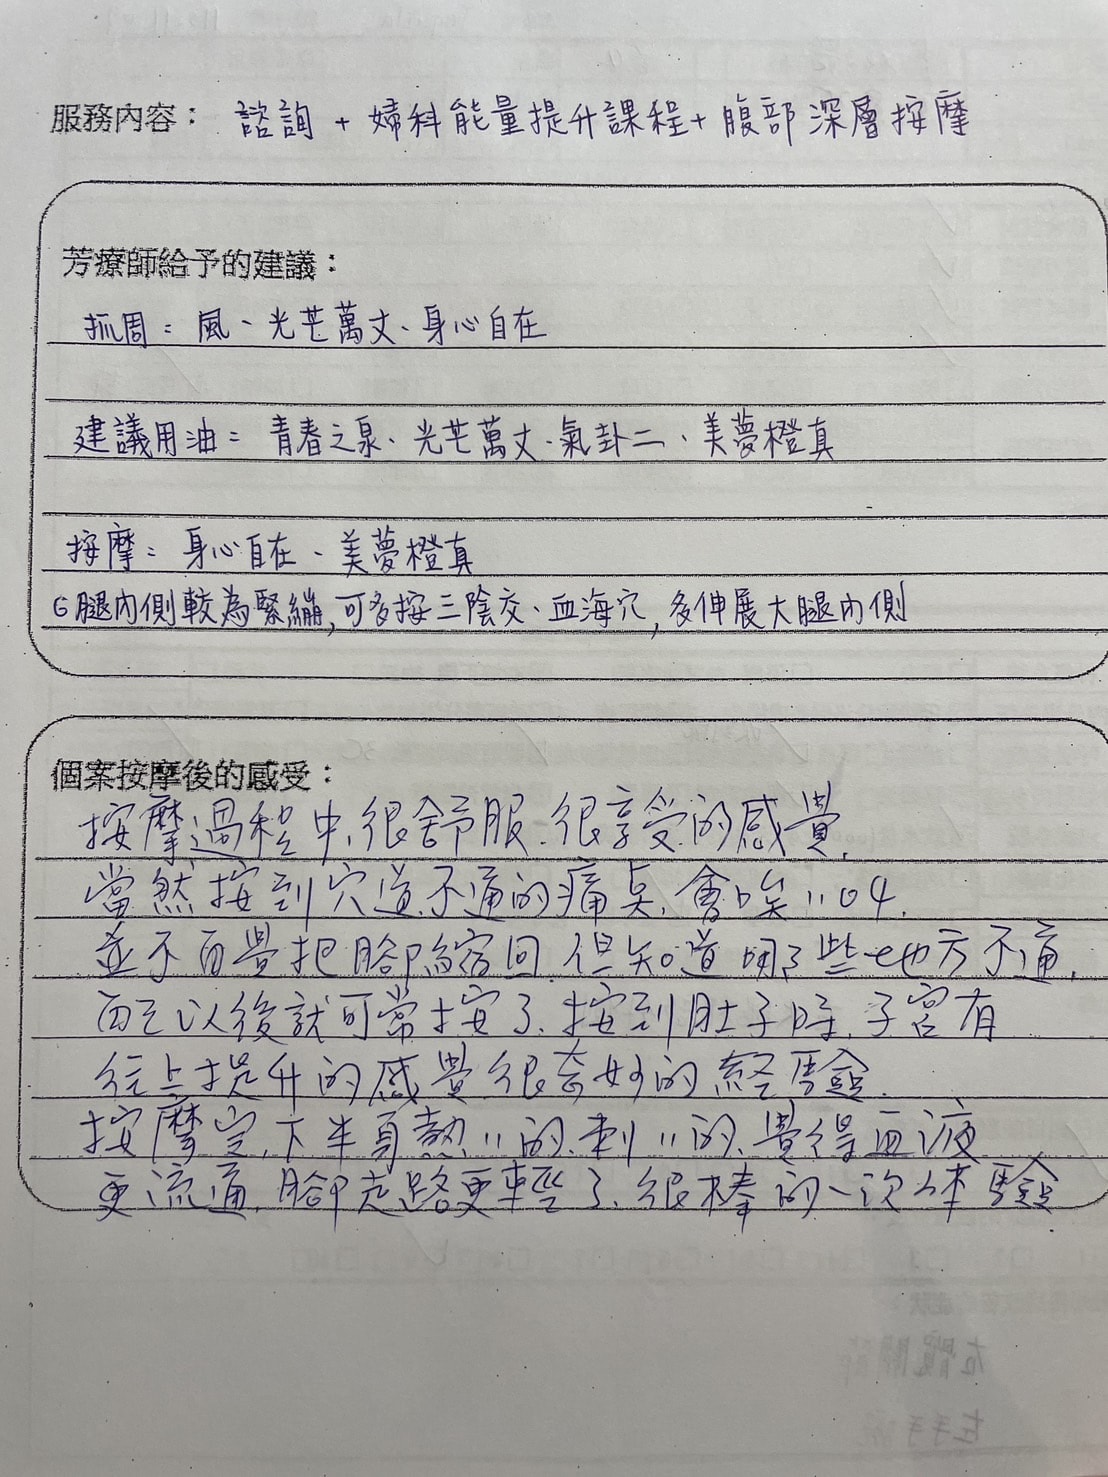 服務內容： 諮詢 + 婦科能量提升課程+ 腹部深層按摩
芳療師給予的建議：
抓周：風、光芒萬丈、身心自在
建議用油：青春之泉、光芒萬丈、氣卦二、美夢橙真
按摩：身心自在、美夢橙真
腿內側較為緊繃,可多按三陰交、血海穴,多伸展大腿內側
個案按摩後的感受：
按摩過程中,很舒服.很享受的感覺,
當然按到穴道不通的痛點,會唉〃叫.
並不自覺把腳縮回.但知道哪些地方不通,
以後就可常按了.按到肚子時,子宮有
往上提升的感覺很奇妙的經驗.
按摩完,下半身熱〃的.刺〃的.覺得血液
更流通,腳走路更輕了.很棒的一次体驗